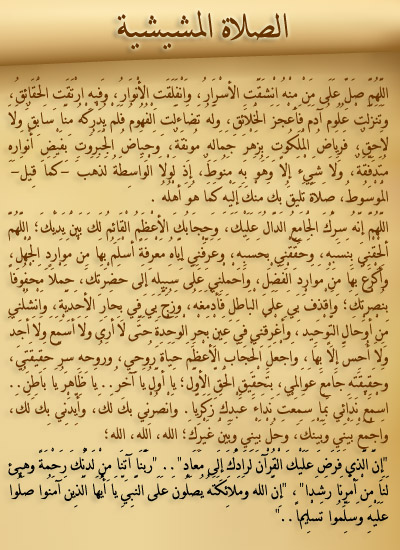 الصلاة المشيشية
اللَّهُمَّ صَلِّ عَلَى مَنْ مِنْهُ انْشَقَّتِ الأَسْرَارُ، وَانْفَلَقَتِ الأَنْوَارُ، وَفِيهِ ارْتَقَتِ الْحَقَائِقُ،
وَتَنَزَّلَتْ عُلُومُ آدَمَ فَأَعْجَزَ الْخَلَائِقَ، وَلَهُ تَضَاءَلَتِ الْفُهُومُ فَلَمْ يُدْرِكْهُ مِنَّا سَابِقٌ وَلَا
لَاحِقٌ، فَرِيَاضُ الْمَلَكُوتِ بِزَهْرِ جَمَالِهِ مُونِقَةٌ، وَحِيَاضُ الْجَبَرُوتِ بِفَيْضِ أَنْوَارِهِ
مُتَدَفِّقَةٌ، وَلَا شَيْءَ إِلَّا وَهُوَ بِهِ مَنُوطٌ، إِذْ لَوْلَا الْوَاسِطَةُ لَذَهَبَ –كَمَا قِيلَ–
الْمَوْسُوطُ، صَلَاةً تَلِيقُ بِكَ مِنْكَ إِلَيْهِ كَمَا هُوَ أَهْلُهُ .
اللَّهُمَّ إِنَّهُ سِرُّكَ الْجَامِعُ الدَّالُّ عَلَيْكَ، وَحِجَابُكَ الأَعْظَمُ الْقَائِمُ لَكَ بَيْنَ يَدَيْكَ؛ اللَّهُمَّ
أَلْحِقْنِي بِنَسَبِهِ، وَحَقِّقْنِي بِحَسَبِهِ، وَعَرِّفْنِي إِيَّاهُ مَعْرِفَةً أَسْلَمُ بِهَا مِنْ مَوَارِدِ الْجَهْلِ،
وَأَكْرَعُ بِهَا مِنْ مَوَارِدِ الْفَضْلِ، وَاحْمِلْنِي عَلَى سَبِيلِهِ إِلَى حَضْرَتِكَ، حَمْلًا مَحْفُوفًا
بِنُصْرَتِكَ؛ وَاقْذِفْ بِي عَلَى الْبَاطِلِ فَأَدْمَغَهُ، وَزُجَّ بِي فِي بِحَارِ الأَحَدِيَّةِ، وَانْشُلْنِي
مِنْ أَوْحَالِ التَّوْحِيدِ، وَأَغْرِقْنِي فِي عَيْنِ بَحْرِ الْوَحْدَةِ حَتَّى لَا أَرَى وَلَا أَسْمَعَ وَلَا أَجِدَ
وَلَا أُحِسَّ إِلَّا بِهَا، وَاجْعَلِ الْحِجَابَ الأَعْظَمَ حَيَاةَ رُوحِي، وَرُوحَهُ سِرَّ حَقِيقَتِي،
وَحَقِيقَتَهُ جَامِعَ عَوَالِمِي، بِتَحْقِيقِ الْحَقِّ الأَوَّلِ؛ يَا أَوَّلُ يَا آخِرُ.. يَا ظَاهِرُ يَا بَاطِنُ..
اسْمَعْ نِدَائِي بِمَا سَمِعْتَ نِدَاءَ عَبْدِكَ زَكَرِيَّا. وَانْصُرْنِي بِكَ لَكَ، وَأَيِّدْنِي بِكَ لَكَ،
وَاجْمَعْ بَيْنِي وَبَيْنَكَ، وَحُلْ بَيْنِي وَبَيْنَ غَيْرِكَ؛ الله، الله، الله؛
"إِنَّ الَّذِي فَرَضَ عَلَيْكَ الْقُرْآنَ لَرَادُّكَ إِلَى مَعَادٍ".. "رَبَّنَا آتِنَا مِنْ لَدُنْكَ رَحْمَةً وَهَيِّئْ
لَنَا مِنْ أَمْرِنَا رَشَدًا"، "إِنَّ اللهَ وَمَلَائِكَتَهُ يُصَلُّونَ عَلَى النَّبِيِّ يَا أَيُّهَا الَّذِينَ آمَنُوا صَلُّوا
عَلَيْهِ وَسَلِّمُوا تَسْلِيمًا.."